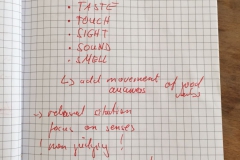 • TASTE
• TOUCH
• SIGHT
• SOUND
• SMELL
↳ add movement of food
→ relaxed situation
focus on senses
! non judging !